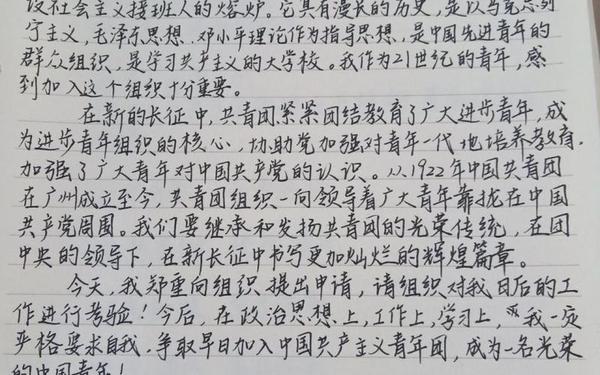 设社会主义接班人的熔炉。它具有漫长的历史，是以马克思列
宁主义，毛泽东思想，邓小平理论作为指导思想，是中国先进青年的
群众组织，是学习共产主义的大学校。我作为21世纪的青年，感
到加入这个组织十分重要。
在新的长征中，共青团紧紧团结教育了广大进步青年，成
为进步青年组织的核心，协助党加强对青年一代地培养教育，
加强了广大青年对中国共产党的认识。从1922年中国共青团
在广州成立至今，共青团组织一向领导着广大青年靠拢在中国
共产党周围。我们要继承和发扬共青团的光荣传统，在团
中央的领导下，在新长征中书写更加灿烂的辉煌篇章。
今天，我郑重向组织提出申请，请组织对我日后的工
作进行考验！今后，在政治思想上，工作上，学习上，我一定
严格要求自我，争取早日加入中国共产主义青年团，成为一名光荣
的中国青年！